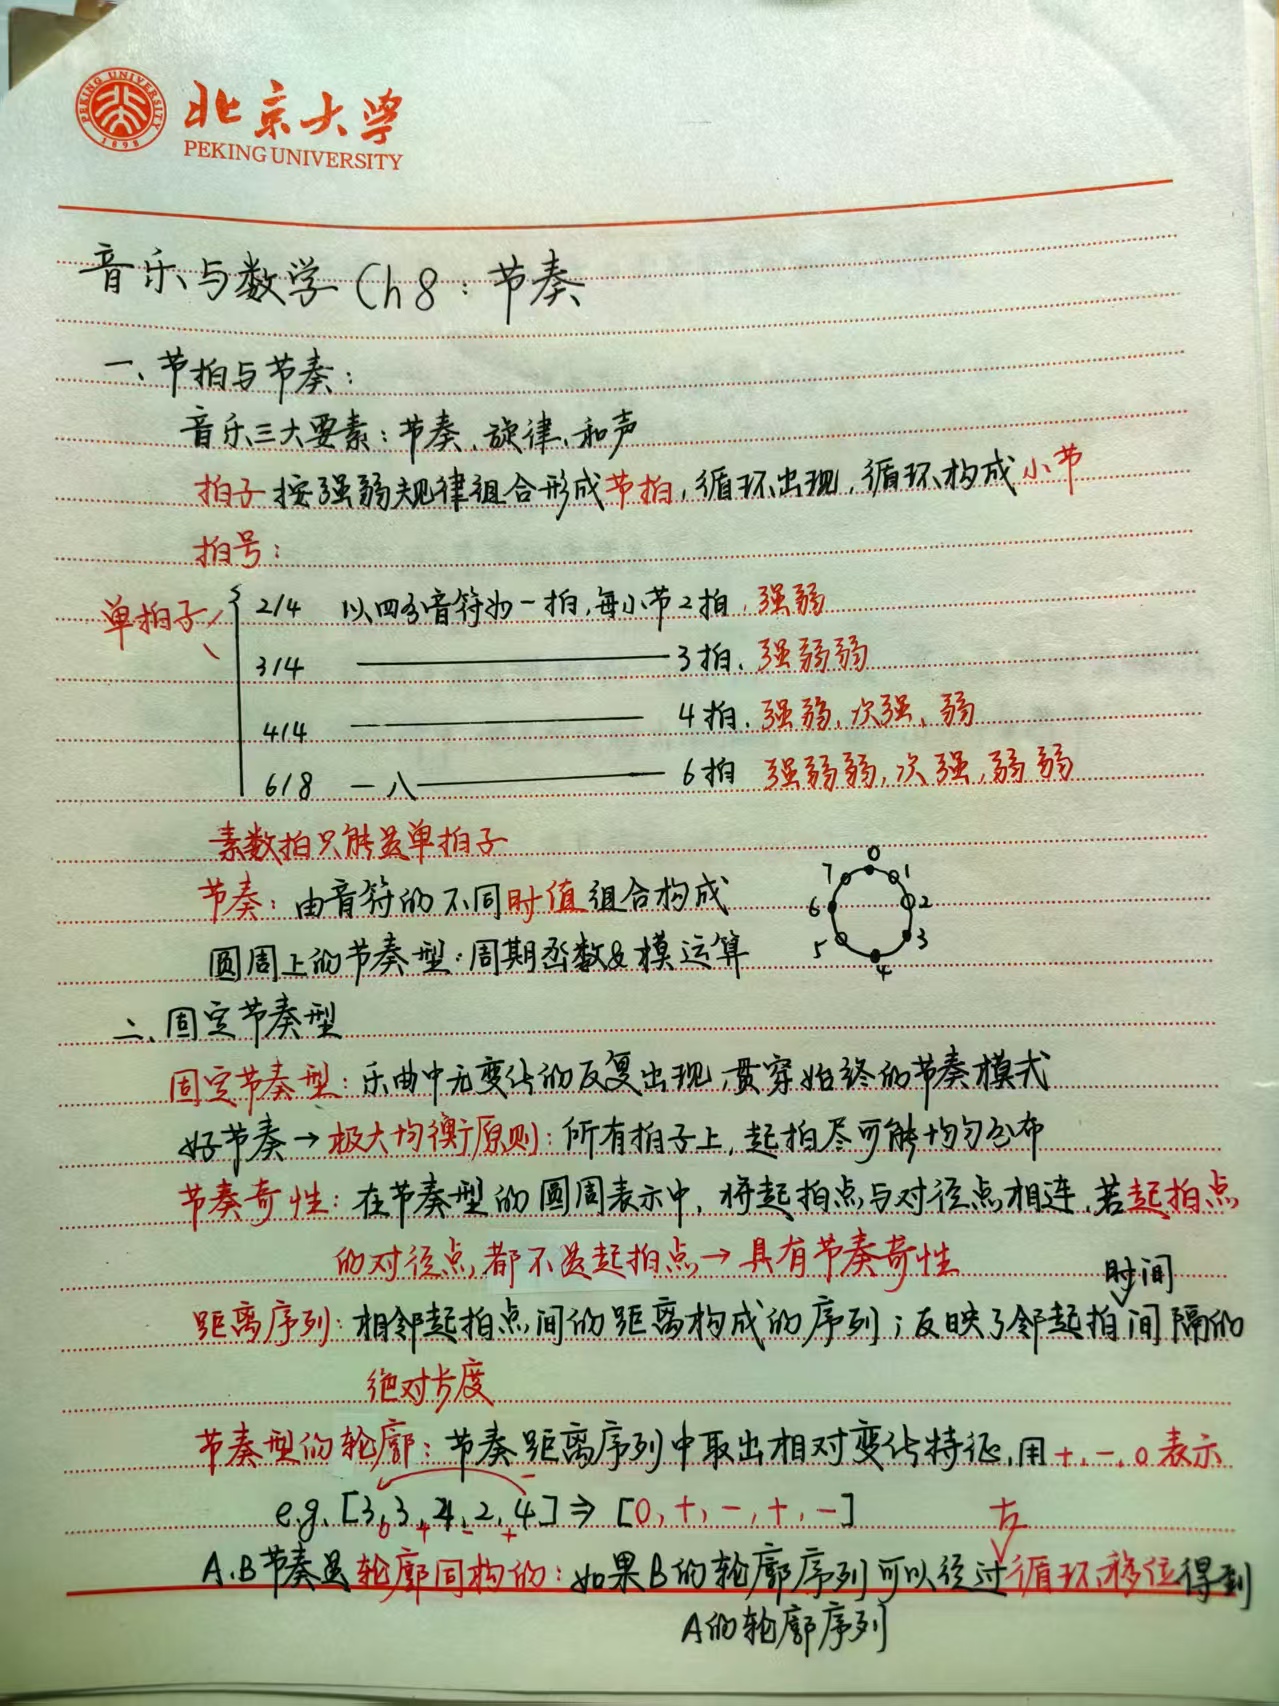 北京大学
PEKING UNIVERSITY
PEKING UNIVERSITY
1898
音乐与数学 Ch8：节奏
一、节拍与节奏：
音乐三大要素：节奏、旋律、和声
拍子按强弱规律组合形成节拍，循环出现，循环构成小节
拍号：
单拍子
2/4 以四分音符为一拍，每小节2拍，强弱
3/4 —— 3拍、强弱弱
4/4 —— 4拍、强弱、次强、弱
6/8 — 八 —— 6拍 强弱弱，次强，弱弱
素数拍只能是单拍子
节奏：由音符的不同时值组合构成
圆周上的节奏型：周期函数&模运算
0 1 2 3 4 5 6 7
二、固定节奏型
固定节奏型：乐曲中无变化的反复出现，贯穿始终的节奏模式
好节奏→极大均衡原则：所有拍子上，起拍尽可能均匀分布
节奏奇性：在节奏型的圆周表示中，将起拍点与对径点相连，若起拍点
的对径点都不是起拍点→具有节奏奇性
距离序列：相邻起拍点间的距离构成的序列；反映了邻起拍时间间隔的
绝对长度
节奏型的轮廓：节奏距离序列中取出相对变化特征，用+，-，0表示
e.g. [3,3,4,2,4] ⇒ [0,+,-,+,-]
0 + - + -
A.B节奏是轮廓同构的：如果B的轮廓序列可以经过右循环移位得到
A的轮廓序列